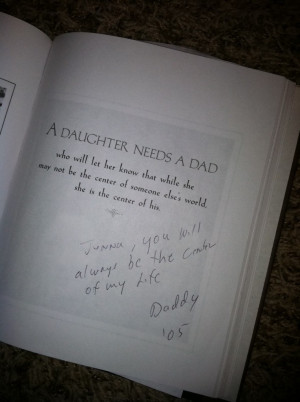 A DAUGHTER NEEDS A DAD
who will let her know that while she
may not be the center of someone else's world,
she is the center of his.
Jenna, you will
always be the center
of my life
Daddy
'05